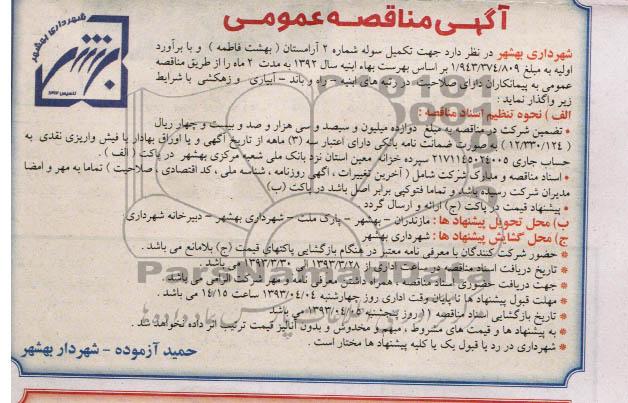 آگهی مناقصه عمومی
شهرداری بهشهر
تاسیس ۱۳۰۳
شهرداری بهشهر در نظر دارد جهت تکمیل سوله شماره ۲ آرامستان ( بهشت فاطمه ) و با برآورد
اولیه به مبلغ ۱/۹۴۳/۳۷۴/۸۰۹ بر اساس فهرست بهاء ابنیه سال ۱۳۹۲ به مدت ۲ ماه را از طریق مناقصه
عمومی به پیمانکاران دارای صلاحیت در رتبه های ابنیه - راه و باند - آبیاری و زهکشی با شرایط
زیر واگذار نماید :
الف ) نحوه تنظیم اسناد مناقصه :
• تضمین شرکت در مناقصه به مبلغ دوازده میلیون و سیصد و سی هزار و صد و بیست و چهار ریال
( ۱۲/۳۳۰/۱۲۴ ) به صورت ضمانت نامه بانکی دارای اعتبار سه (۳) ماهه از تاریخ آگهی و یا اوراق بهادار یا فیش واریزی نقدی به
حساب جاری ۲۱۷۱۱۴۵۰۲۴۰۰۵ سپرده خزانه معین استان نزد بانک ملی شعبه مرکزی بهشهر در پاکت ( الف ) .
• اسناد مناقصه و مدارک شرکت شامل ( آخرین تغییرات ، آگهی روزنامه ، شناسه ملی ، کد اقتصادی ، صلاحیت ) تماما به مهر و امضا
مدیران شرکت رسیده باشد و تماما فتوکپی برابر اصل باشد در پاکت (ب)
• پیشنهاد قیمت در پاکت (ج) ارائه و ارسال گردد
ب) محل تحویل پیشنهاد ها : مازندران - بهشهر - پارک ملت - شهرداری بهشهر - دبیرخانه شهرداری
ج) محل گشایش پیشنهاد ها : شهرداری بهشهر
* حضور شرکت کنندگان با معرفی نامه معتبر در هنگام بازگشایی پاکتهای قیمت (ج) بلامانع می باشد .
* تاریخ دریافت اسناد مناقصه در ساعت اداری از ۱۳۹۳/۳/۲۸ الی ۱۳۹۳/۳/۳۰ می باشد .
* جهت دریافت حضوری اسناد مناقصه ، همراه داشتن معرفی نامه و مهر شرکت الزامی می باشد .
* مهلت قبول پیشنهاد ها تا پایان وقت اداری روز چهارشنبه ۱۳۹۳/۰۴/۰۴ ساعت ۱۴/۱۵ می باشد .
* تاریخ بازگشایی اسناد مناقصه روز پنجشنبه ۱۳۹۳/۰۴/۰۵ می باشد .
* به پیشنهاد ها و قیمت های مشروط ، مبهم و مخدوش و بدون آنالیز قیمت ترتیب اثر داده نخواهد شد .
* شهرداری در رد یا قبول یک یا کلیه پیشنهاد ها مختار است .
حمید آزموده - شهردار بهشهر
ParsNamadData